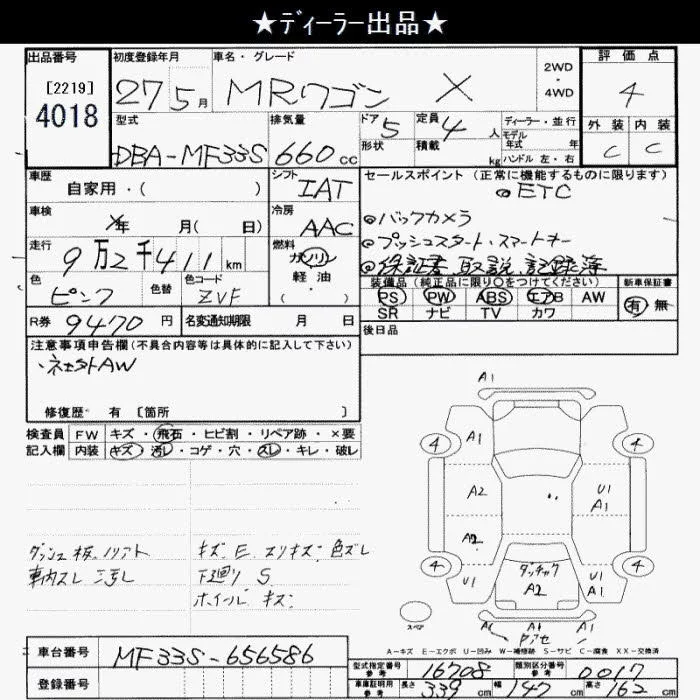 ★ディーラー出品★
出品番号
[2219]
4018
初度登録年月
27年5月
車名・グレード
MRワゴン X
2WD
・
4WD
評価点
4
型式
DBA-MF33S
排気量
660cc
ドア 5
形状
定員 4人
積載 kg
ディーラー・並行
モデル年式 年式
ハンドル 左・右
外装 内装
C C
車歴
自家用・( )
シフト
IAT
セールスポイント (正常に機能するものに限ります)
◎ETC
◎バックカメラ
◎プッシュスタート・スマートキー
◎保証書 取説 記録簿
車検
年 月( 日)
冷房
AAC
走行
9万2千411km
燃料
ガソリン
軽・油
・( )
色
ピンク
色替
色コード
ZVF
装備品 (純正品に限り○をつけてください)
PS PW ABS エアB AW
SR ナビ TV カワ
新車保証書
有 無
R券 9470円
名変通知期限 月 日
後日品
注意事項申告欄(不具合内容等は具体的に記入して下さい)
・社外AW
修復歴・ 有 [箇所 ]
検査員
記入欄
FW キズ・飛石・ヒビ割・リペア跡・×要
内装 キズ・汚レ・コゲ・穴・スレ・キレ・破レ
キズ E スリキズ 色ズレ
車内スレ 汚レ
下廻り S
ホイール キズ
A1
4 A1 4
A2 U1
A1
A2
4 4
U1 U1
A1
A2
A1 A1 A1
スペア
A-キズ E-エクボ U-凹み W-補修跡 S-サビ C-腐食 XX-交換済
車台番号
MF33S-656586
登録番号
型式指定番号
参考
16708
類別区分番号
参考
0017
車庫証明用
参考
長さ 339cm 幅 147cm 高さ 162cm